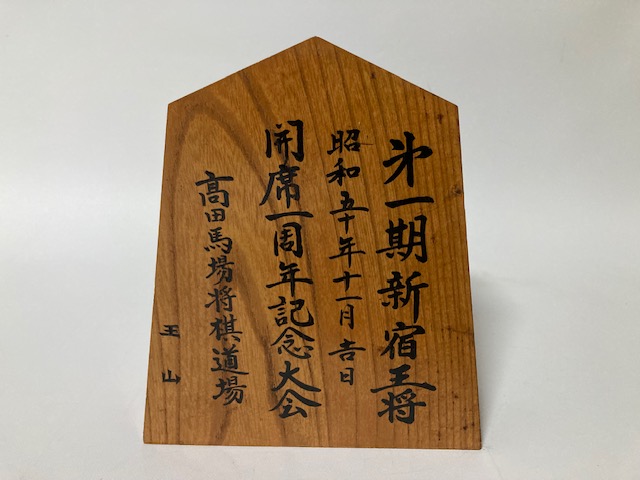 㐧一期新宿王将
昭和五十年十一月吉日
開席一周年記念大会
高田馬場将棋道場
王山